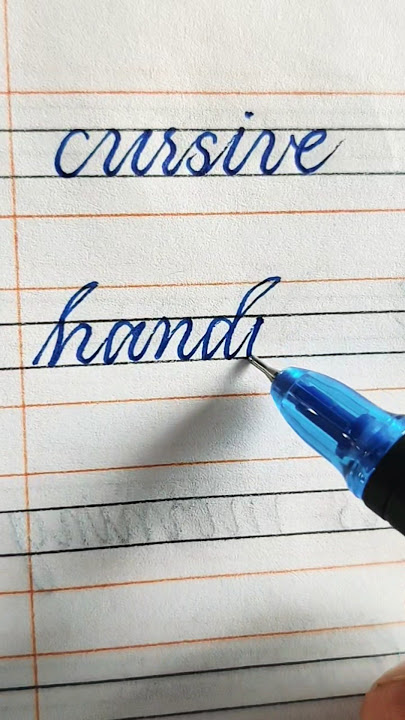 cursive
hand